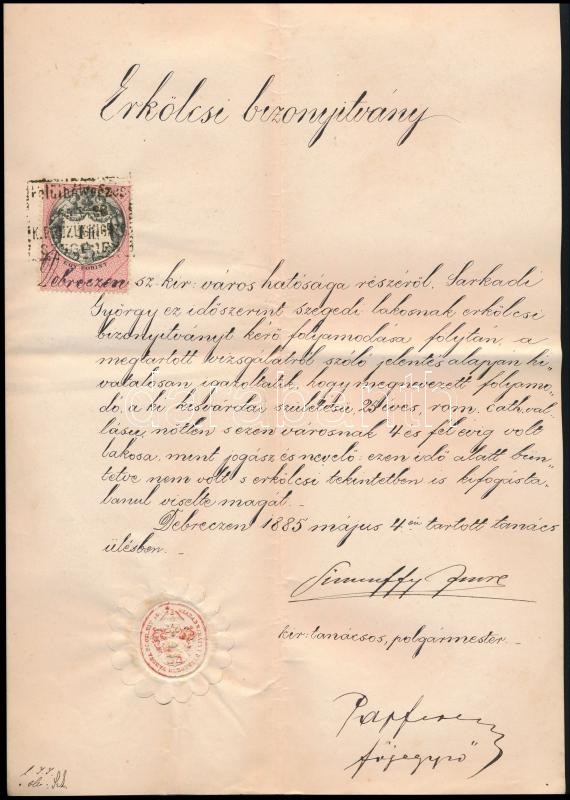 Erkölcsi bizonyitvány
Debreczen sz. kir: város hatósága részéről, Sarkadi
György ez időszerint szegedi lakosnak erkölcsi
bizonyitványt kérő folyamodása folytán, a
megtartott vizsgálatról szóló jelentés alapján hi„
vatalosan igazoltatik, hogy megnevezett folyamo„
dó, a ki kisvárdai születésü, 25 éves, rom. cath. val„
lásu, nőtlen s ezen városnak 4 és fél évig volt
lakosa, mint jogász és nevelő: ezen idő alatt bün„
tetve nem volt s erkölcsi tekintetben is kifogásta„
lanul viselte magát._
Debreczen 1885 május 4én tartott tanács
ülésben._
Simonffy Imre
kir: tanácsos, polgármester._
főjegyző
darabanth